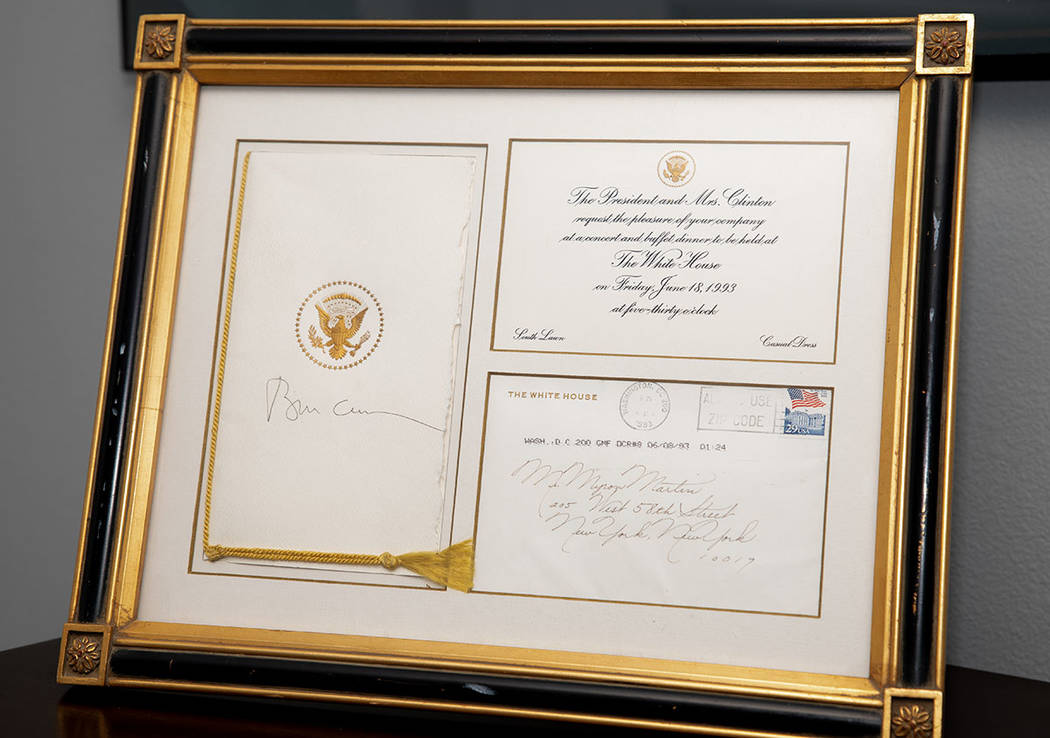 Bill Clinton
The President and Mrs. Clinton
request the pleasure of your company
at a concert and buffet dinner to be held at
The White House
on Friday, June 18, 1993
at five-thirty o'clock
South Lawn
Casual Dress
THE WHITE HOUSE
WASHINGTON, DC
1993
USE
ZIP CODE
29 USA
WASH., D C 200 GMF DCR#8 06/08/93 01:24
Mr. Myron Martin
205 West 58th Street
New York, New York
10019